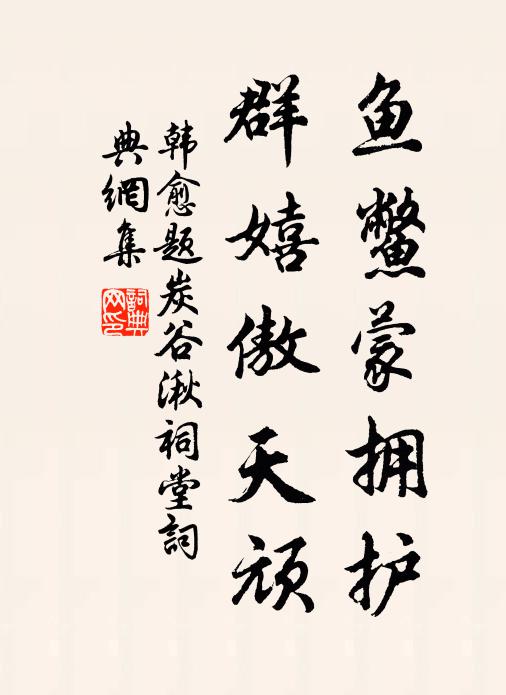 鱼鳖蒙拥护
群嬉傲天顽
韩愈题炭谷湫祠堂詞
典網集
詞典网印